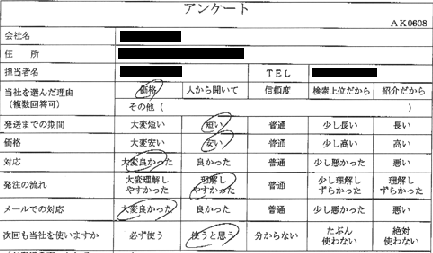 アンケート
AK0608
会社名
住 所
担当者名 TEL
当社を選んだ理由 価格 人から聞いて 信頼度 検索上位だから 紹介だから
(複数回答可) その他 (
発送までの期間 大変短い 短い 普通 少し長い 長い
価格 大変安い 安い 普通 少し高い 高い
対応 大変良かった 良かった 普通 少し悪かった 悪い
発注の流れ 大変理解しやすかった 理解しやすかった 普通 少し理解しずらかった 理解しずらかった
メールでの対応 大変良かった 良かった 普通 少し悪かった 悪い
次回も当社を使いますか 必ず使う 使うと思う 分からない たぶん使わない 絶対使わない